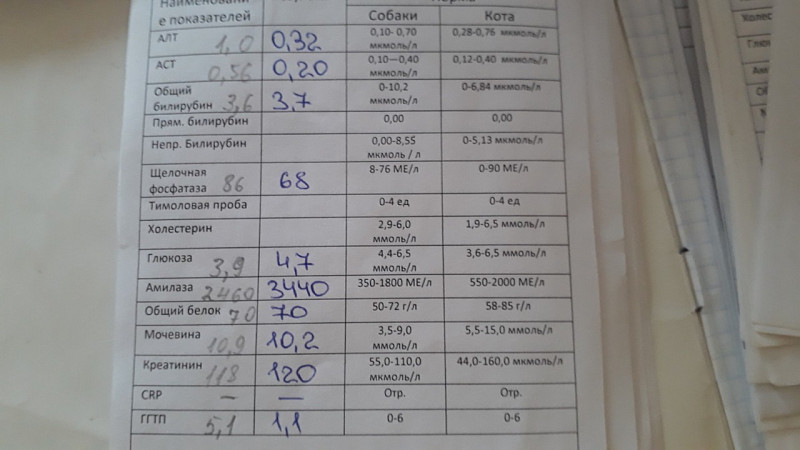 е показателей Собаки Кота
АЛТ 1,0 0,32 0,10- 0,70 мкмоль/л 0,28-0,76 мкмоль/л
АСТ 0,56 0,20 0,10—0,40 мкмоль/л 0,12-0,40 мкмоль/л
Общий билирубин 3,6 3,7 0-10,2 мкмоль/л 0-6,84 мкмоль/л
Прям. билирубин 0,00 0,00
Непр. Билирубин 0,00-8,55 мкмоль / л 0-5,13 мкмоль/л
Щелочная фосфатаза 86 68 8-76 МЕ/л 0-90 МЕ/л
Тимоловая проба 0-4 ед 0-4 ед
Холестерин 2,9-6,0 ммоль/л 1,9-6,5 ммоль/л
Глюкоза 3,9 4,7 4,4-6,5 ммоль/л 3,6-6,5 ммоль/л
Амилаза 2460 3440 350-1800 МЕ/л 550-2000 МЕ/л
Общий белок 70 70 50-72 г/л 58-85 г/л
Мочевина 10,9 10,2 3,5-9,0 ммоль/л 5,5-15,0 ммоль/л
Креатинин 118 120 55,0-110,0 мкмоль/л 44,0-160,0 мкмоль/л
CRP — — Отр. Отр.
ГГТП 5,1 1,1 0-6 0-6